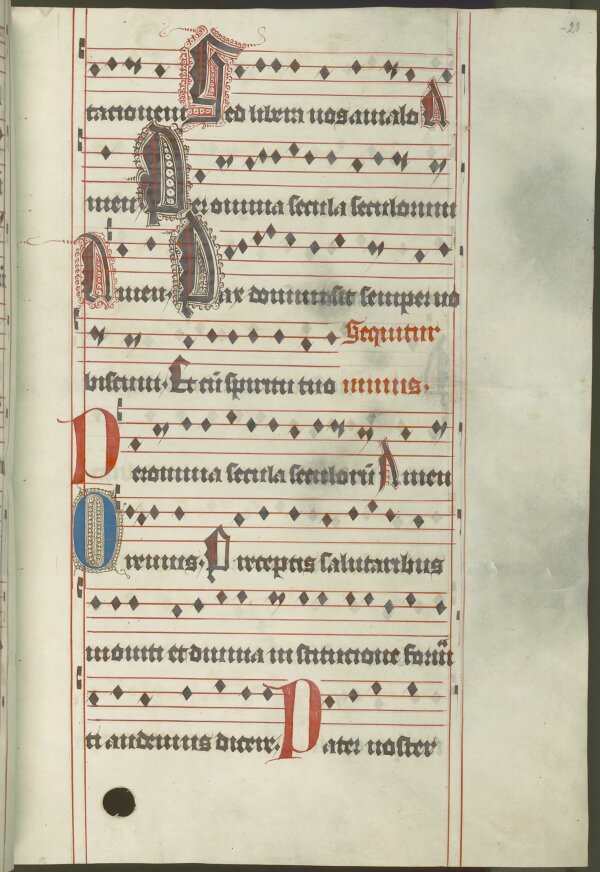 21
tationem Sed libera nos amalo A
men Per omnia secula seculorum
Amen. Pax domini sit semper uo
Sequitur
biscum. Et cū spiritu tuo minus.
Per omnia secula seculorū Amen
Oremus. Preceptis salutaribus
moniti et diuina institucione formā
ti audemus dicere. Pater noster